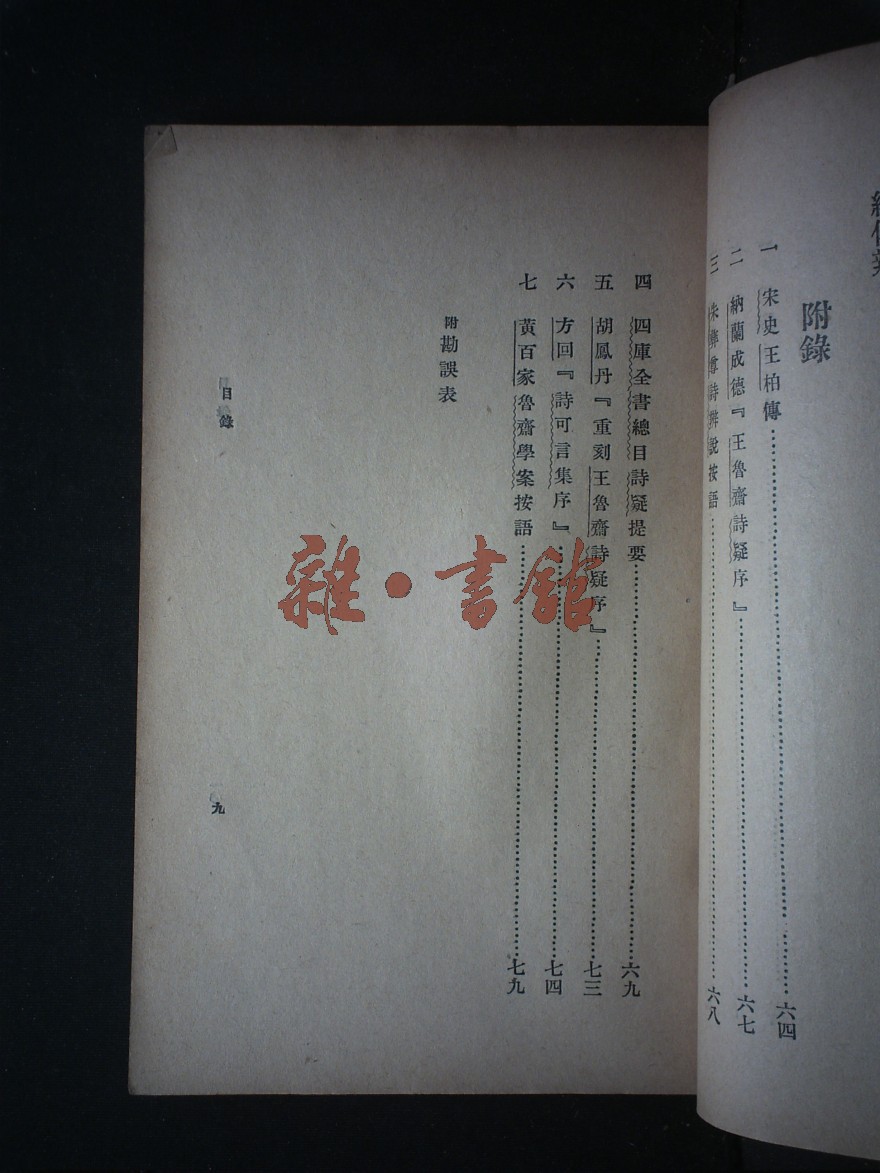 附錄
一　宋史王柏傳……六四
二　納蘭成德『王魯齋詩疑序』……六七
三　朱彝尊詩辨說按語……六八
四　四庫全書總目詩疑提要……六九
五　胡鳳丹『重刻王魯齋詩疑序』……七三
六　方回『詩可言集序』……七四
七　黃百家魯齋學案按語……七九
附勘誤表
目錄
九
雜·書館